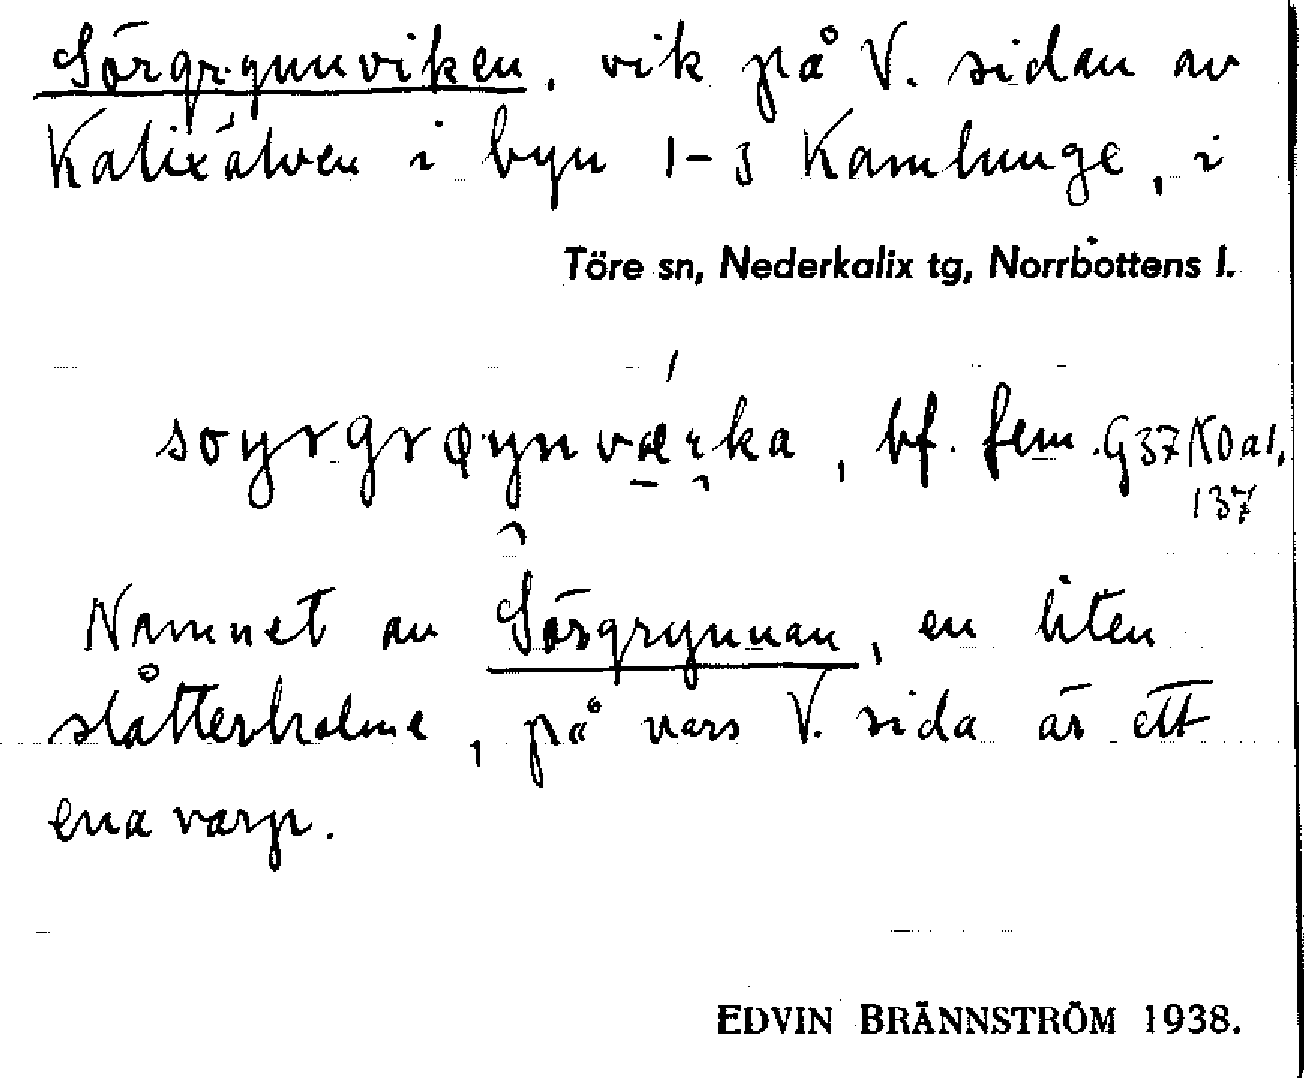 Sörgrynnviken, vik på V. sidan av
Kalixälven i byn 1-3 Kamlunge, i
Töre sn, Nederkalix tg, Norrbottens l.
soyrgrøynværka, bf. fem.
137
Namnet av Sörgrynnan, en liten
slåtterholme, på vars V. sida är ett
ena varp.
EDVIN BRÄNNSTRÖM 1938.